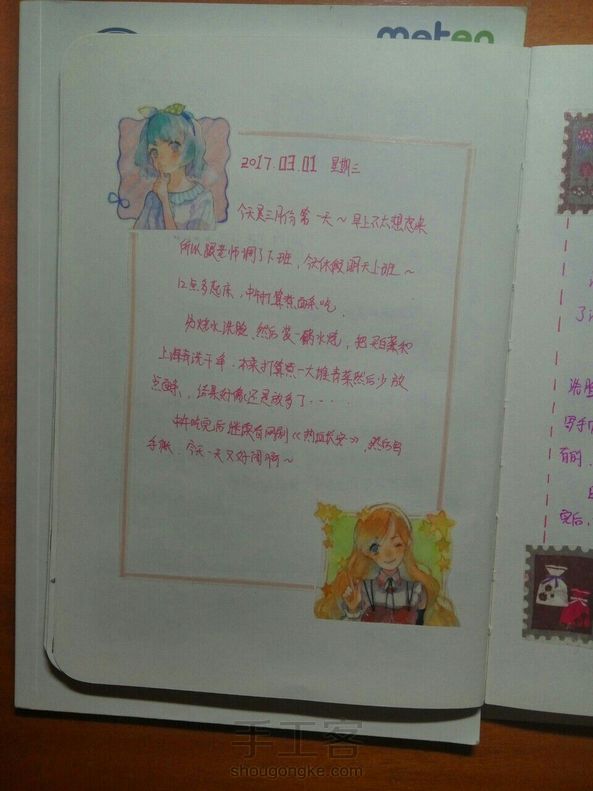 meten
2017.03.01 星期三
今天是三月份第一天～早上不太想起来
所以跟老师调了下班，今天休假明天上班～
12点多起床，中午打算煮面条吃.
先烧水洗脸，然后装一锅水烧，把白菜和
上海青洗干净.本来打算煮一大堆青菜然后少放
点面条，结果好像还是放多了……
中午吃完后继续看网剧《热血长安》，然后写
手帐.今天一天又好闲啊～
了
洗脸
写手帐
有的.
完后,
手工客
shougongke.com